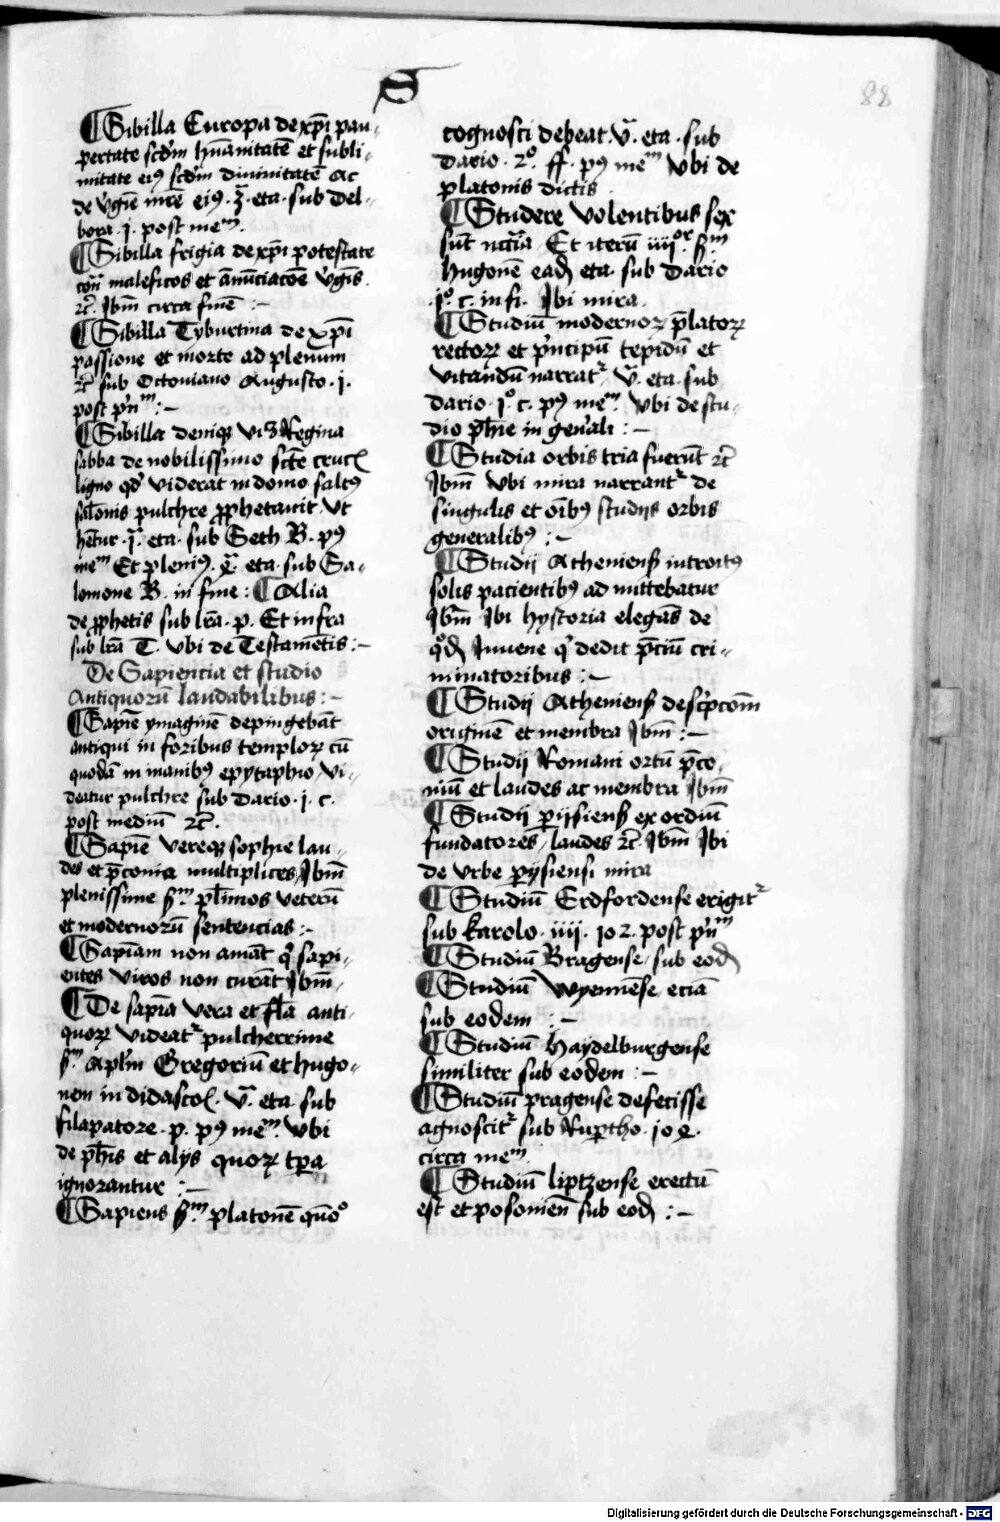 S
88
¶ Sibilla Europa de xp̄i pau-
pertate scd̄m hūanitatē et subli-
mitate eiꝰ scd̄m diuinitatē Ac
de v̓gīe mr̄e eiꝰ · 3ᵃ· eta· sub Del-
bora · i · post meᵐ·
¶ Sibilla frigia de xp̄i potestate
cōn̄ maleficos et ānūciacōe v̓gīs ·
ꝛc̄ · Ibīm circa finē :~
¶ Sibilla Tyburtina de xp̄i
passione et morte ad plenum
ꝛc̄ sub Octouiano Augusto · i ·
post pn̓ᵐ :~
¶ Sibilla deniqꝫ Regina
sabba de nobilissimo scē crucꝭ
ligno qđ viderat in domo saltꝰ
salōnis pulchre ꝓphetauit vt
hētur · iᵃ· eta · sub Seth B · pꝰ
meᵐ Et pleniꝰ · eta · sub Sa-
lomone B · in fine : ¶ Alia
de ꝓphetis sub lr̄a · p · Et infra
sub lr̄a T · vbi de Testamētis :~
De Sapiencia et studio
Antiquorū laudabilibus :~
¶ Sapīe ymaginē depingebāt
antiqui in foribus temploꝝ cū
quodā in manibꝰ epytaphio / vi-
deatur pulchre sub Dario · i · c ·
post mediū ꝛc̄ ·
¶ Sapīe vereqꝫ sophie lau-
des et p̄conia multiplices / Ibīm
plenissime sᵐ· pl̄imos veterū
et modernorū sentencias :~
¶ Sapīam non amāt q̓ sapi-
entes viros non curāt Ibīm ·
¶ De sapīa vera et fl̄a anti-
quoꝝ videatʳ pulcherrime
sᵐ· Apl̄m Gregoriū et hugo-
nem in didascoꝉ · vᵃ· eta · sub
filapatore · p · pꝰ meᵐ· vbi
de ph̄is et alijs quoꝝ tp̄a
ignorantur :~
¶ Sapiens sᵐ· platonē quōº
cognosci debeat · vᵃ· eta · sub
Dario · 2º · ff · pꝰ meᵐ vbi de
platonis dictis ·
¶ Studere volentibus sex
sūt nccͣia Et iterū iiijᵒʳ· sᵐ
hugonē eađ eta · sub Dario
· iº· c · in fi · Ibi mira ·
¶ Studiū modernoꝝ p̄latoꝝ
rectoꝝ et p̓ncipū tepidū et
vitandū narratʳ vᵃ· eta · sub
dario · iº· c · pꝰ meᵐ· vbi de stu-
dio ph̄ie in gen̓ali :~
¶ Studia orbis tria fuerūt ꝛc̄
Ibīm vbi mira narrantʳ de
singulis et oībꝰ studijs orbis
generalibꝰ :~
¶ Studij Atheniensꝭ introitꝰ
solis pacientibꝰ admittebatur
Ibīm Ibi hystoria elegās de
qđ Iuuene q̓ dedit p̄ciū cri-
minatoribus :~
¶ Studij Atheniensꝭ descͥpcōm
originē et membra Ibīm :~
¶ Studij Romani ortū p̄co-
niū et laudes ac membra Ibīm
¶ Studij pijsiensꝭ exordiū
fundatores / laudes ꝛc̄ Ibīm Ibi
de vrbe pijsiensi mira
¶ Studiū Erdfordense erigitʳ
sub karolo · iiij · 102 · post pn̓ᵐ
¶ Studiū Bragense / sub eođ
¶ Studiū wyennēse eciā
sub eodem :~
¶ Studiū Haydelburgense
similiter sub eodem :~
¶ Studiū pragense defecisse
agnoscitʳ sub Rup̄tho ·
circa meᵐ
¶ Studiū liptzense erectū
est et posoniēn sub eođ :~
Digitalisierung gefördert durch die Deutsche Forschungsgemeinschaft - DFG